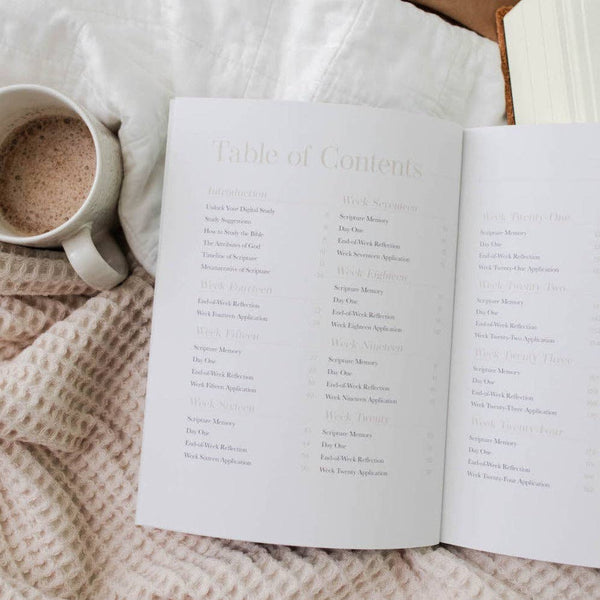 Table of Contents
Introduction
Unlock Your Digital Study
Study Suggestions
How to Study the Bible
The Attributes of God
Timeline of Scripture
Metanarrative of Scripture
Week Fourteen
End-of-Week Reflection
Week Fourteen Application
Week Fifteen
Scripture Memory
Day One
End-of-Week Reflection
Week Fifteen Application
Week Sixteen
Scripture Memory
Day One
End-of-Week Reflection
Week Sixteen Application
Week Seventeen
Scripture Memory
Day One
End-of-Week Reflection
Week Seventeen Application
Week Eighteen
Scripture Memory
Day One
End-of-Week Reflection
Week Eighteen Application
Week Nineteen
Scripture Memory
Day One
End-of-Week Reflection
Week Nineteen Application
Week Twenty
Scripture Memory
Day One
End-of-Week Reflection
Week Twenty Application
Week Twenty-One
Scripture Memory
Day One
End-of-Week Reflection
Week Twenty-One Application
Week Twenty-Two
Scripture Memory
Day One
End-of-Week Reflection
Week Twenty-Two Application
Week Twenty-Three
Scripture Memory
Day One
End-of-Week Reflection
Week Twenty-Three Application
Week Twenty-Four
Scripture Memory
Day One
End-of-Week Reflection
Week Twenty-Four Application